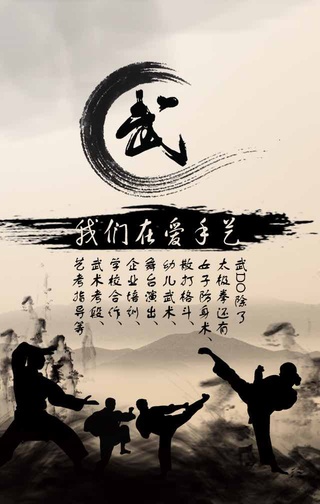 武
我们在爱手艺
武DO除了
太极拳还有
女子防身术、
散打格斗、
幼儿武术、
舞台演出、
企业培训、
学校合作、
武术考段、
艺考指导等